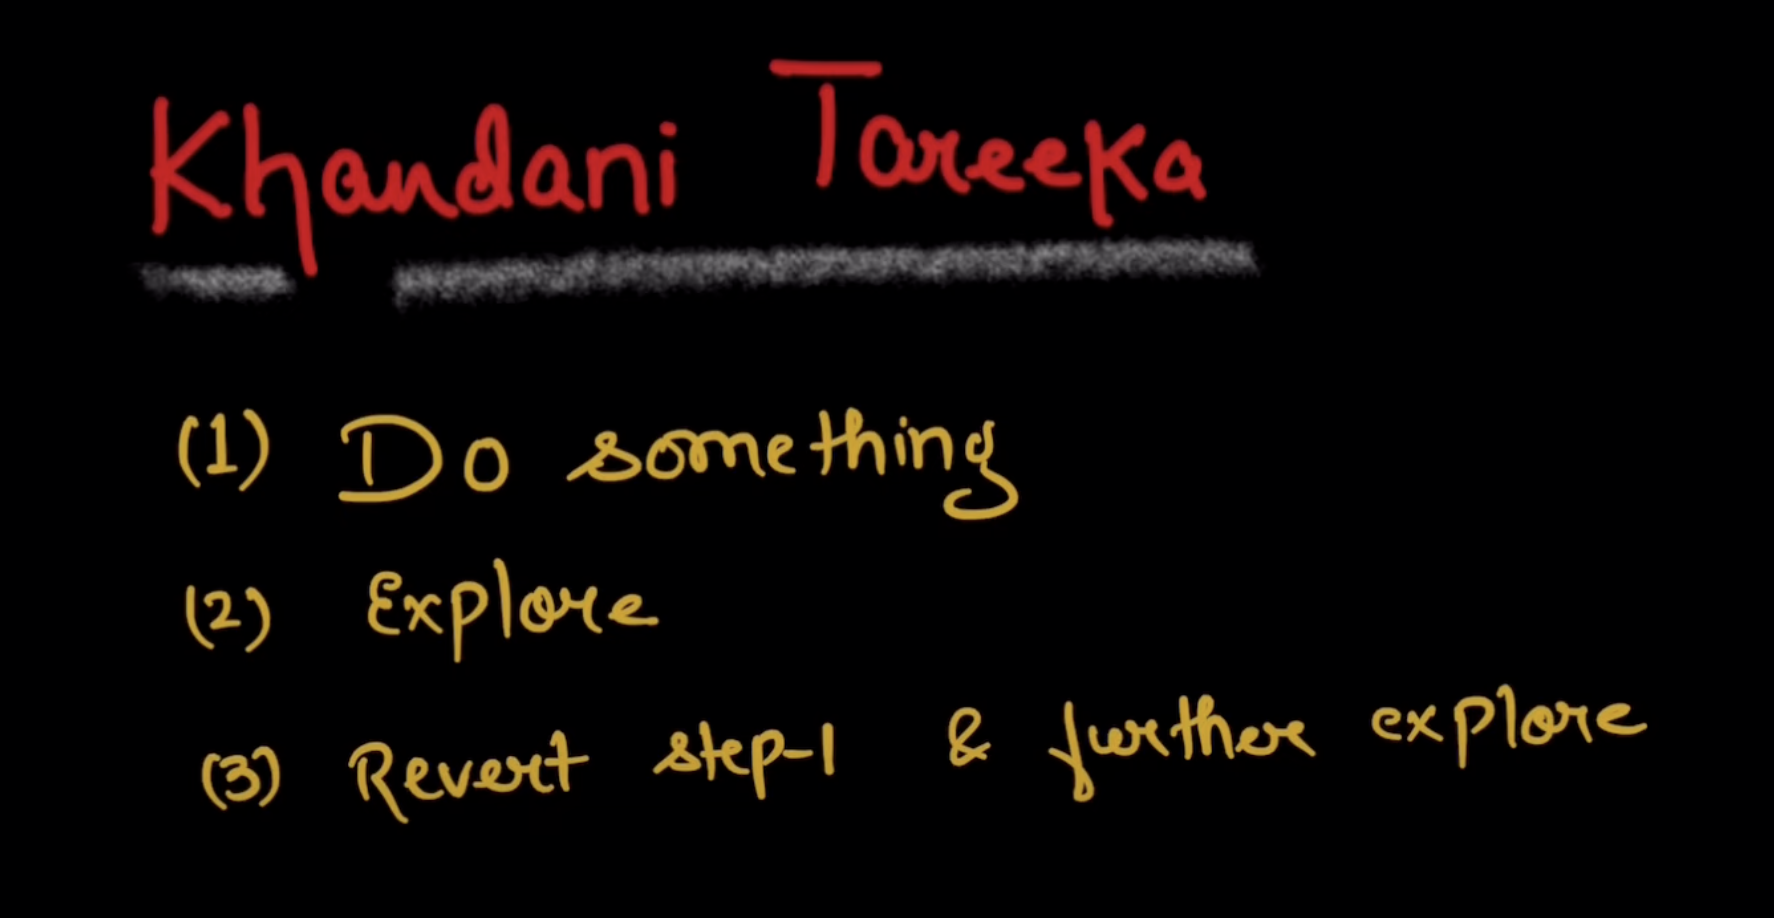 Khandani Tareeka
(1) Do something
(2) Explore
(3) Revert step-1 & further explore